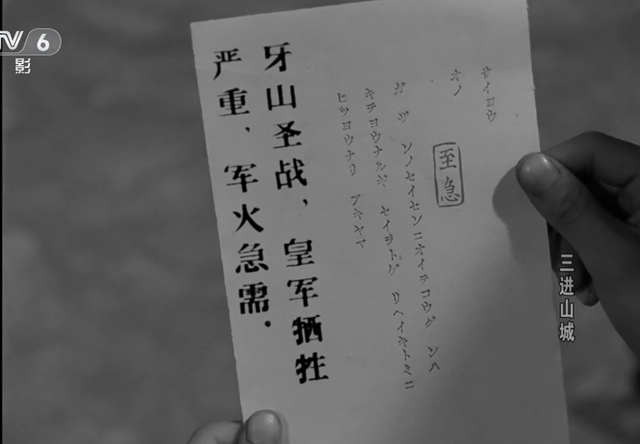 TV 6
影
サイヨウ
オノ
至急
ガ ザ ンノセイセンニオイテコウグ ンハ
キチヨウナルギ セイヲトゲ リヘイキトミニ
ヒツヨウナリ アキヤマ
牙山圣战，皇军牺牲
严重，军火急需.
三进山城